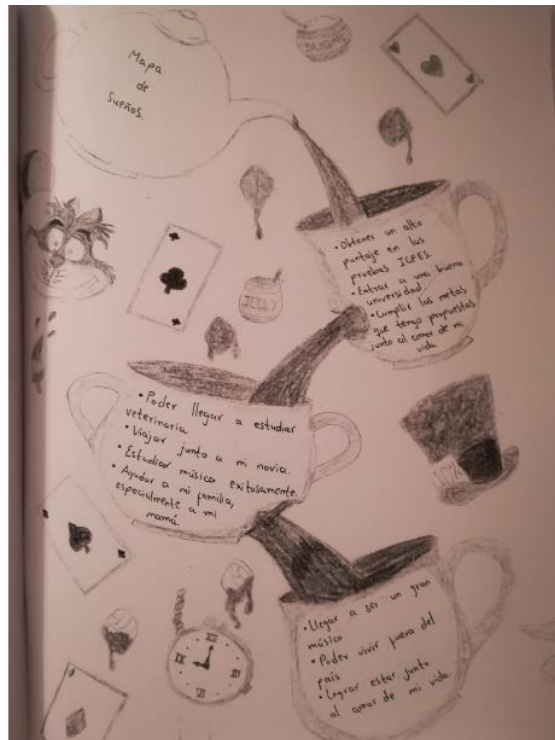 Mapa
de
Sueños.
SUGAR
• Obtener un alto
puntaje en las
pruebas ICFES.
• Entrar a una buena
universidad
• Cumplir las metas
que tengo propuestas
junto al amor de mi
vida
JELLY
• Poder llegar a estudiar
veterinaria
• Viajar junto a mi novia.
• Estudiar música exitosamente.
• Ayudar a mi familia,
especialmente a mi
mamá.
• Llegar a ser un gran
músico
• Poder vivir fuera del
país
• Lograr estar junto
al amor de mi vida.